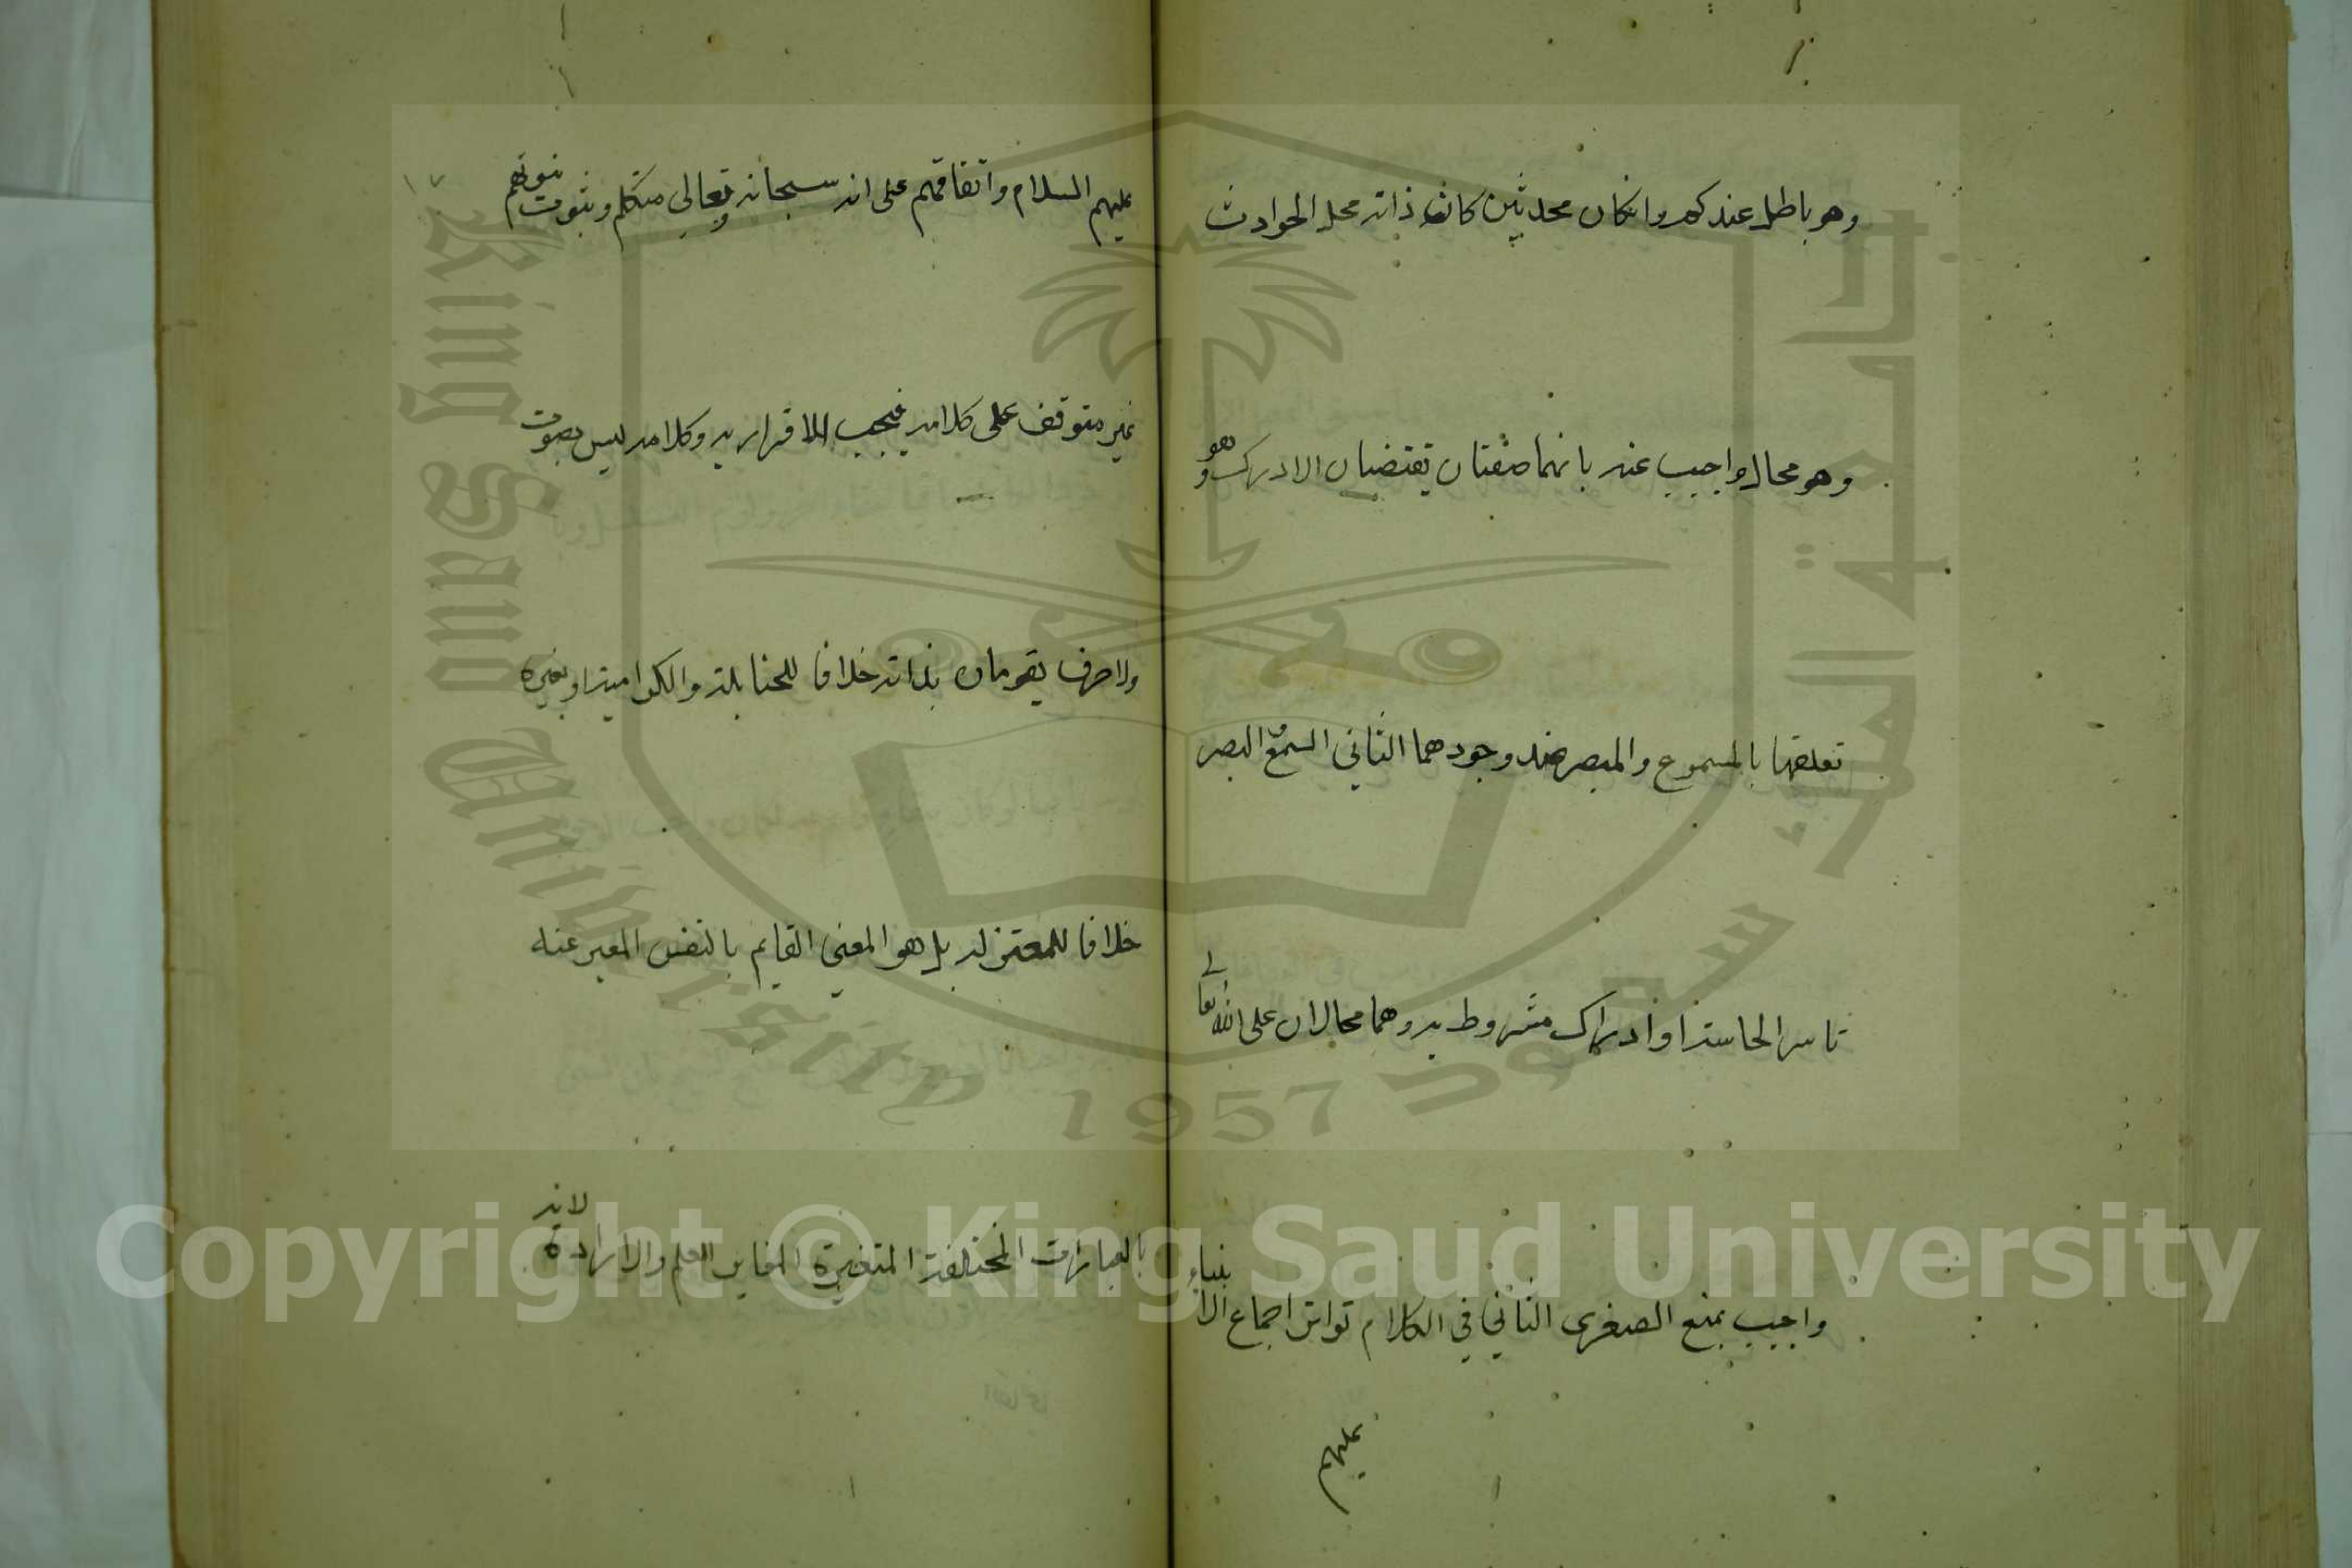 وهو باطل عندكم وان كان محدثين كانت ذاته محل الحوادث
وهو محال واجيب عنه بانهما صفتان يقتضيان الادراك وهو
تعلقها بالمسموع والمبصر عند وجودهما الثاني السمع والبصر
تاسر الحاسة او ادراك مشروط به وهما محالان على الله تعالى
واجيب بمنع الصغرى الثاني في الكلام تواتر اجماع الانبياء
عليهم
١٧
عليهم السلام واتفاقهم على انه سبحانه وتعالى متكلم وثبوت نبوتهم
غير متوقف على كلامه فيجب الاقرار به وكلامه ليس بصوت
ولا حرف يقومان بذاته خلافا للحنابلة والكرامية او بغيره
خلافا للمعتزلة بل هو المعنى القايم بالنفس المعبر عنه
بالعبارات المختلفة المتغيرة المغاير للعلم والارادة لانه
King Saud University
1957
جامعة الملك سعود
Copyright © King Saud University